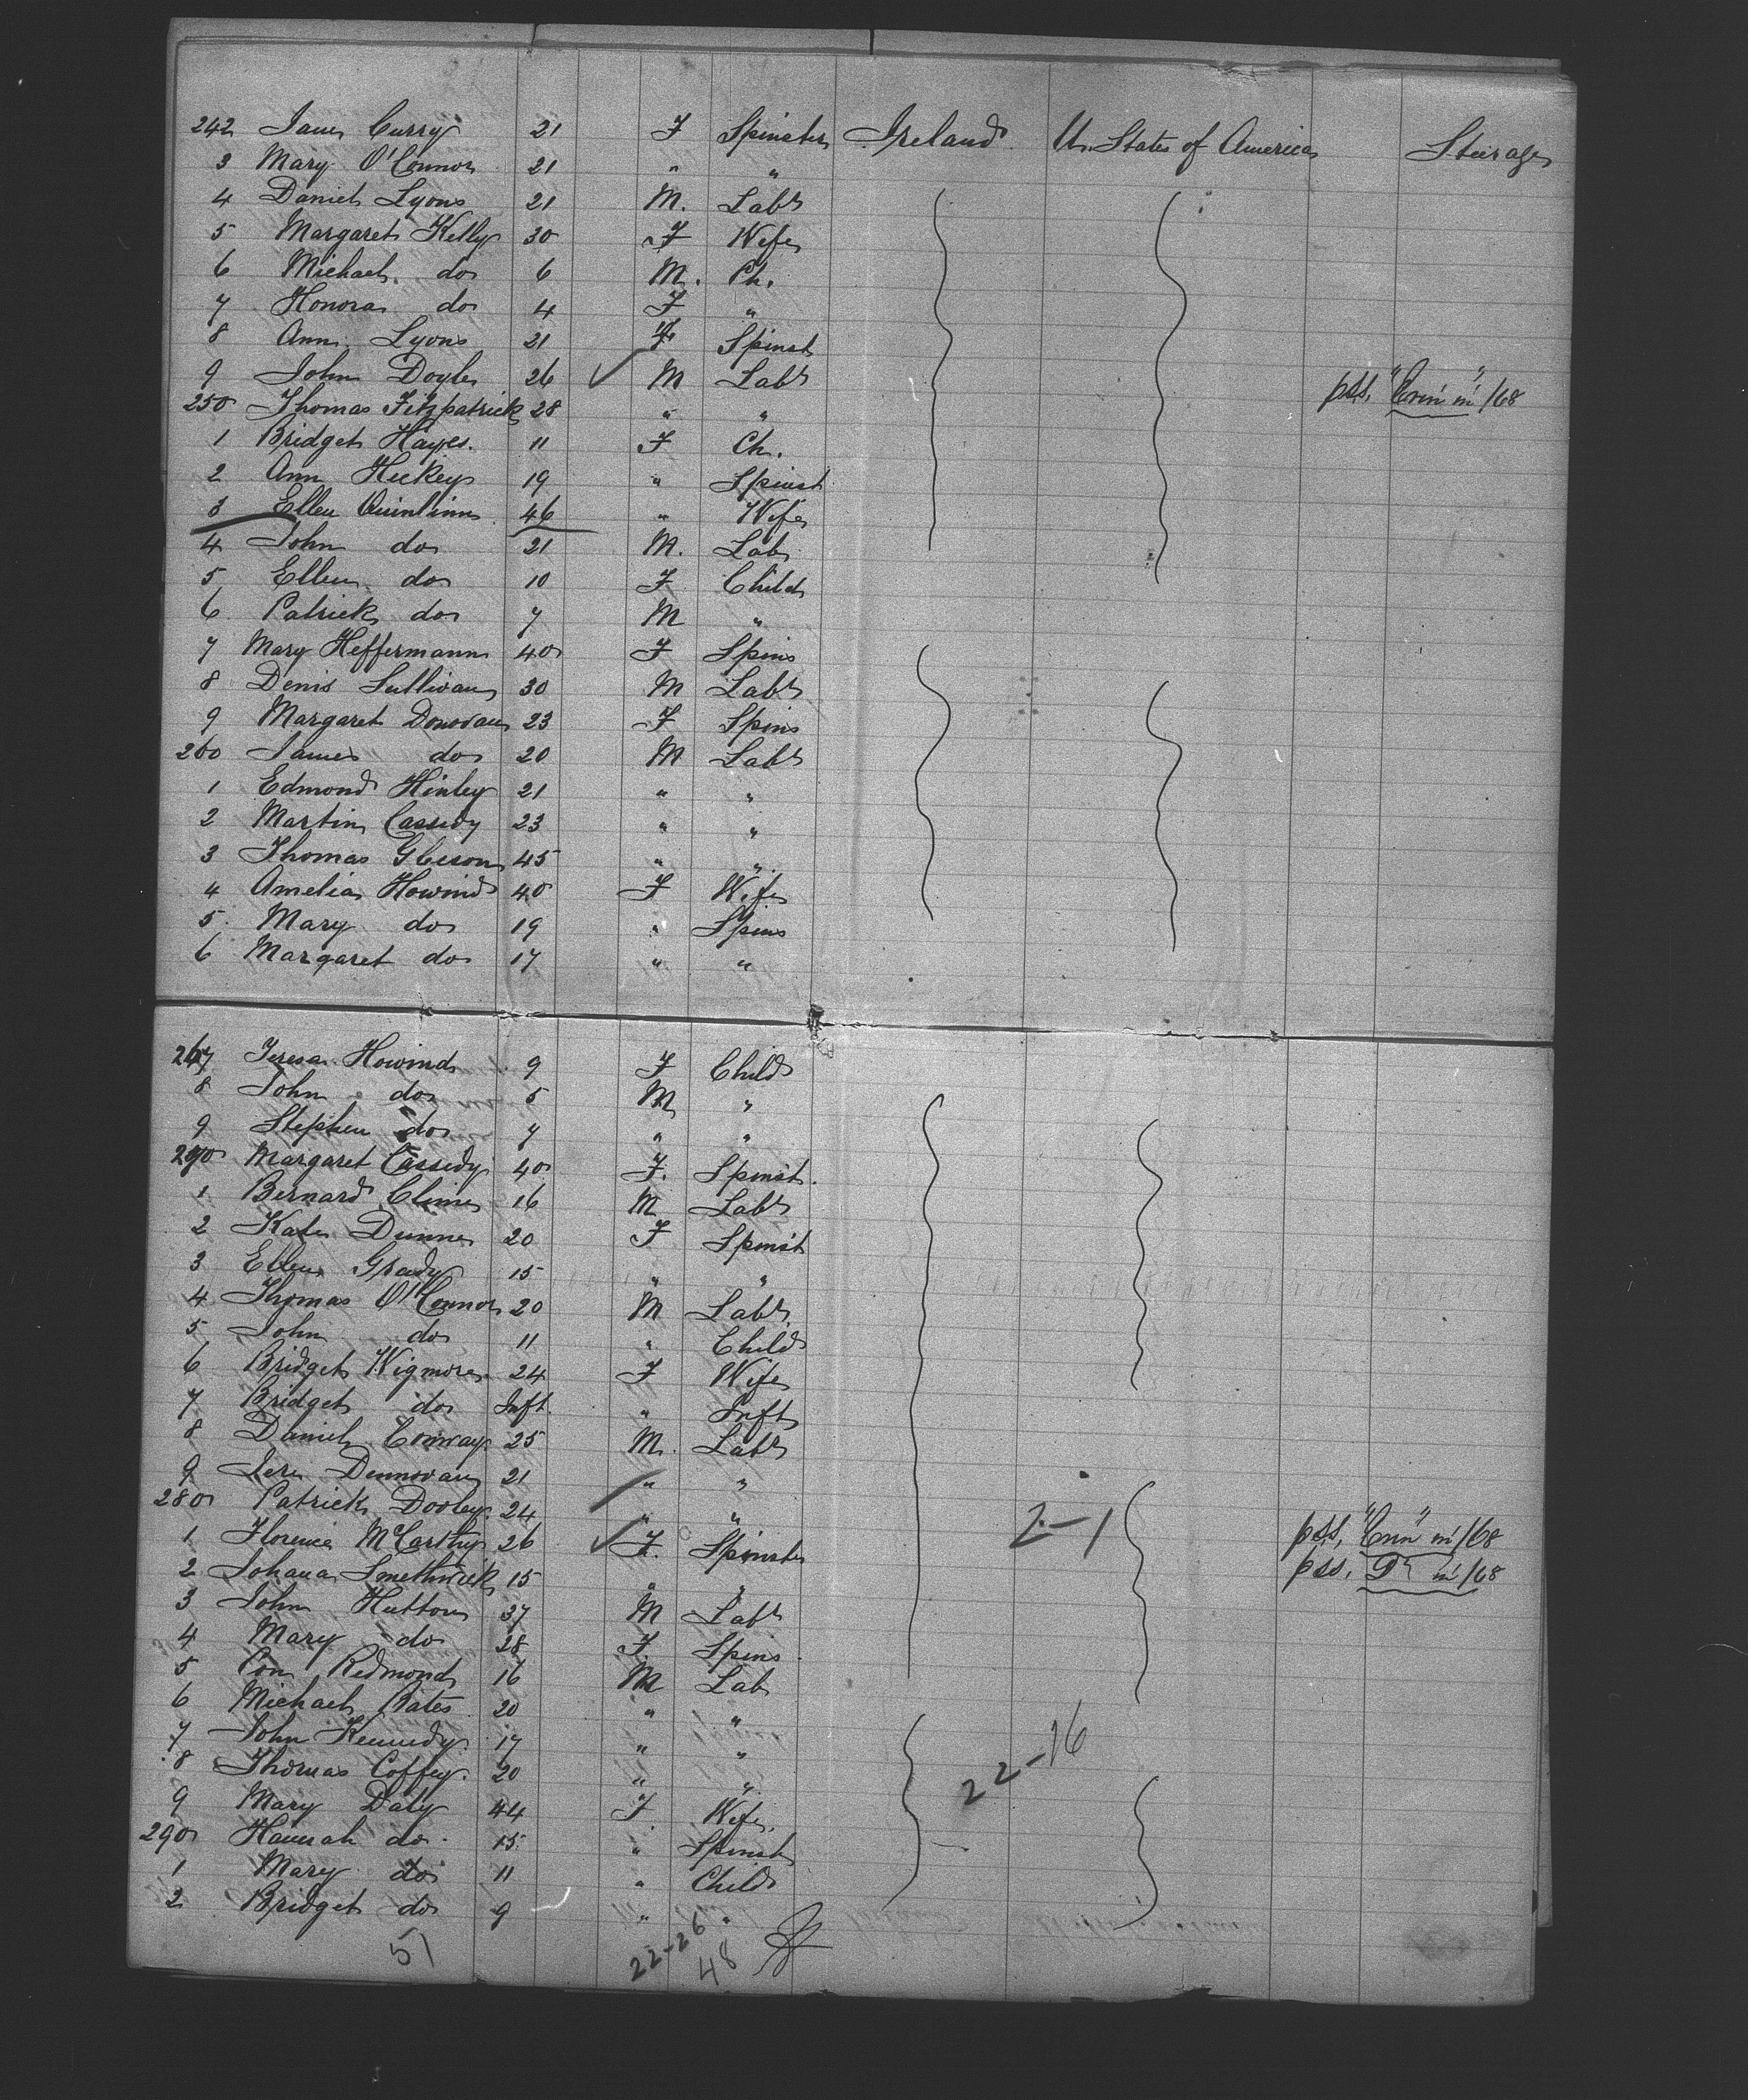 242 Jane Curry 21 F Spinster Ireland U. States of America Steerage
3 Mary O'Connor 21 " "
4 Daniel Lyons 21 M. Labr
5 Margaret Kelly 30 F Wife
6 Michael do 6 M. Ch.
7 Honora do 4 F "
8 Ann Lyons 21 F Spinst
9 John Doyle 26 ✓ M Labr pss. "Erin" in /68
250 Thomas Fitzpatrick 28 " "
1 Bridget Hayes. 11 F Ch.
2 Ann Hickey 19 " Spinst
3 Ellen Quinlinn 46 " Wife
4 John do 21 M. Lab
5 Ellen do 10 F Child
6 Patrick do 7 M "
7 Mary Heffermann 40 F Spins
8 Denis Sullivan 30 M Labr
9 Margaret Donovan 23 F Spins
260 James do 20 M Labr
1 Edmond Hinley 21 " "
2 Martin Cassidy 23 " "
3 Thomas Gleeson 45 " "
4 Amelia Howind 40 F Wife
5 Mary do 19 " Spins
6 Margaret do 17 " "
267 Teresa Howind 9 F Child
8 John do 5 M "
9 Stephen do 7 " "
270 Margaret Cassidy 40 F. Spinst.
1 Bernard Cline 16 M Labr
2 Kate Dunne 20 F Spinst
3 Ellen Grady 15 " "
4 Thomas O'Connor 20 M Labr
5 John do 11 " Child
6 Bridget Wigmore 24 F Wife
7 Bridget do Inft " Inft
8 Daniel Conway 25 M. Labr
9 Jere Dennovan 21 " "
280 Patrick Dooley 24 " " 2-1 pss, "Erin" in /68
1 Florence McCarthy 26 ✓ F. Spinster pss. Do in /68
2 Johana Smethwick 15 " "
3 John Hutton 37 M Labr
4 Mary do 28 F Spins
5 Con Redmond 16 M Lab
6 Michael Bates 20 " "
7 John Kennedy 17 " "
8 Thomas Coffey. 20 " " 22-16
9 Mary Daly 44 F. Wife.
290 Hannah do 15 " Spinst
1 Mary do 11 " Child
2 Bridget do 9 " "
51 22-26 48